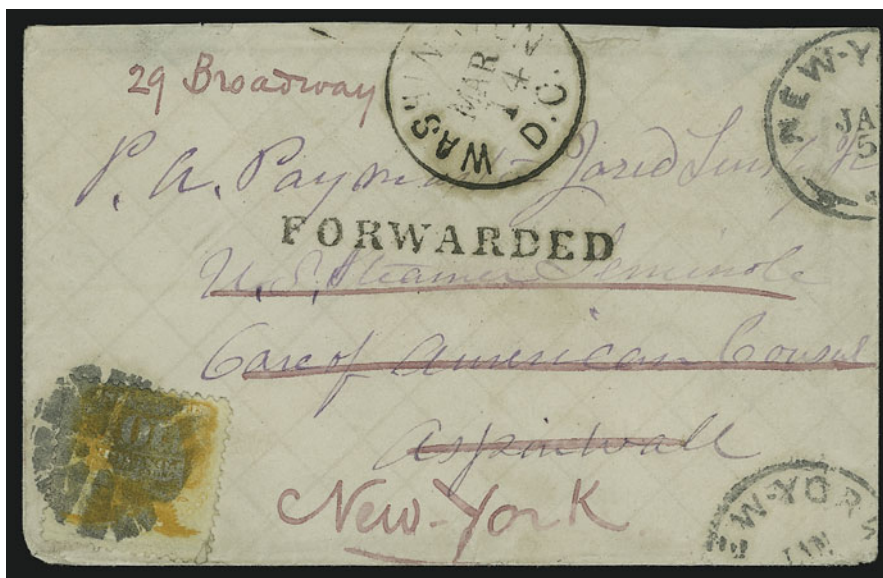 29 Broadway
WASHINGTON D.C.
MAR 14
NEW-Y
JA
5
P. A. Paym Jared Lins
FORWARDED
U.S. Steamer Seminole
Care of American Consul
Aspinwall
New-York
EW-YORK
JAN
10